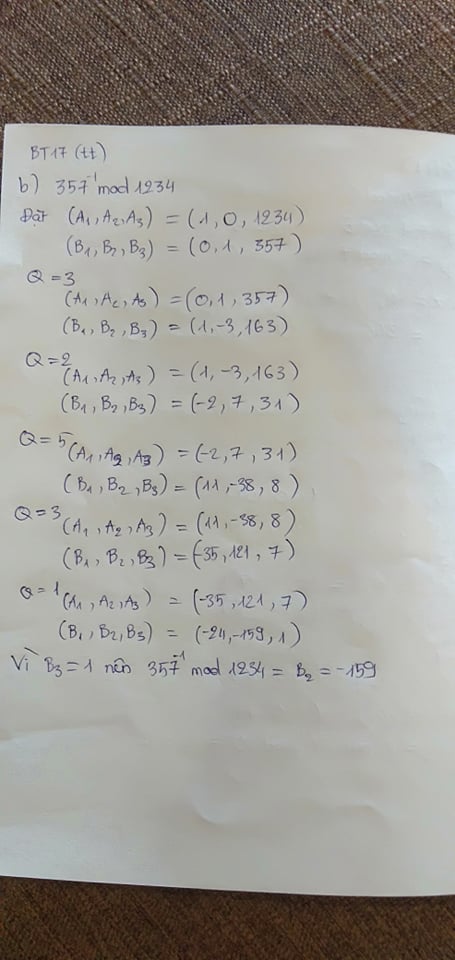 BT17 (tt)
b) 357⁻¹ mod 1234
Đặt (A₁, A₂, A₃) = (1, 0, 1234)
(B₁, B₂, B₃) = (0, 1, 357)
Q = 3
(A₁, A₂, A₃) = (0, 1, 357)
(B₁, B₂, B₃) = (1, -3, 163)
Q = 2
(A₁, A₂, A₃) = (1, -3, 163)
(B₁, B₂, B₃) = (-2, 7, 31)
Q = 5
(A₁, A₂, A₃) = (-2, 7, 31)
(B₁, B₂, B₃) = (11, -38, 8)
Q = 3
(A₁, A₂, A₃) = (11, -38, 8)
(B₁, B₂, B₃) = (-35, 121, 7)
Q = 1
(A₁, A₂, A₃) = (-35, 121, 7)
(B₁, B₂, B₃) = (-24, -159, 1)
Vì B₃ = 1 nên 357⁻¹ mod 1234 = B₂ = -159